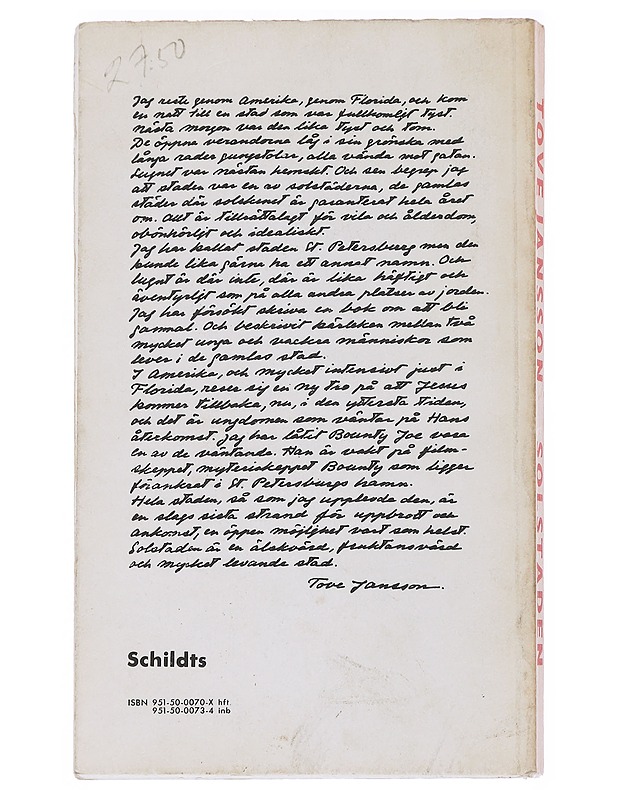 27:50
Jag reste genom Amerika, genom Florida, och kom
en natt till en stad som var fullkomligt tyst.
Nästa morgon var den lika tyst och tom.
De öppna verandorna låg i sin grönska med
långa rader gungstolar, alla vända mot gatan.
Lugnet var nästan hemskt. Och sen begrep jag
att staden var en av solstäderna, de gamlas
städer där solskenet är garanterat hela året
om. Allt är tillrättalagt för vila och ålderdom,
obönhörligt och idealiskt.
Jag har kallat staden St. Petersburg men den
kunde lika gärna ha ett annat namn. Och
lugnt är där inte, där är lika häftigt och
äventyrligt som på alla andra platser av jorden.
Jag har försökt skriva en bok om att bli
gammal. Och beskrivit kärleken mellan två
mycket unga och vackra människor som
lever i de gamlas stad.
I Amerika, och mycket intensivt just i
Florida, reser sig en ny tro på att Jesus
kommer tillbaka, nu, i den yttersta tiden,
och det är ungdomen som väntar på Hans
återkomst. Jag har låtit Bounty Joe vara
en av de väntande. Han är vakt på film-
skeppet, myteriskeppet Bounty som ligger
förankrat i St. Petersburgs hamn.
Hela staden, så som jag upplevde den, är
en slags sista strand för uppbrott och
ankomst, en öppen möjlighet vart som helst.
Solstaden är en älskvärd, fruktansvärd
och mycket levande stad.
Tove Jansson.
Schildts
ISBN 951-50-0070-X hft.
951-50-0073-4 inb
TOVE JANSSON SOLSTADEN